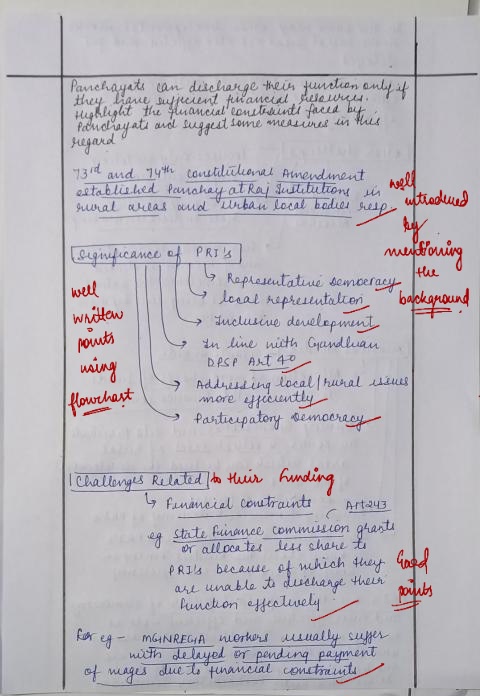 Panchayats can discharge their function only if
they have sufficient financial resources.
Highlight the financial constraints faced by
Panchayats and suggest some measures in this
regard
73rd and 74th constitutional Amendment
established Panchayat Raj Institutions in
rural areas and urban local bodies resp.
well
introduced
by
mentioning
the
background
Significance of PRI's
Representative Democracy
local representation
Inclusive development
In line with Gandhian
DPSP Art 40
Addressing local/rural issues
more efficiently
Participatory Democracy
well
written
points
using
flowchart
Challenges Related to their funding
Financial constraints Art-243
eg State Finance commission grants
or allocates less share to
PRI's because of which they
are unable to discharge their
function effectively
Good
points
For eg - MGNREGA workers usually suffer
with delayed or pending payment
of wages due to financial constraints